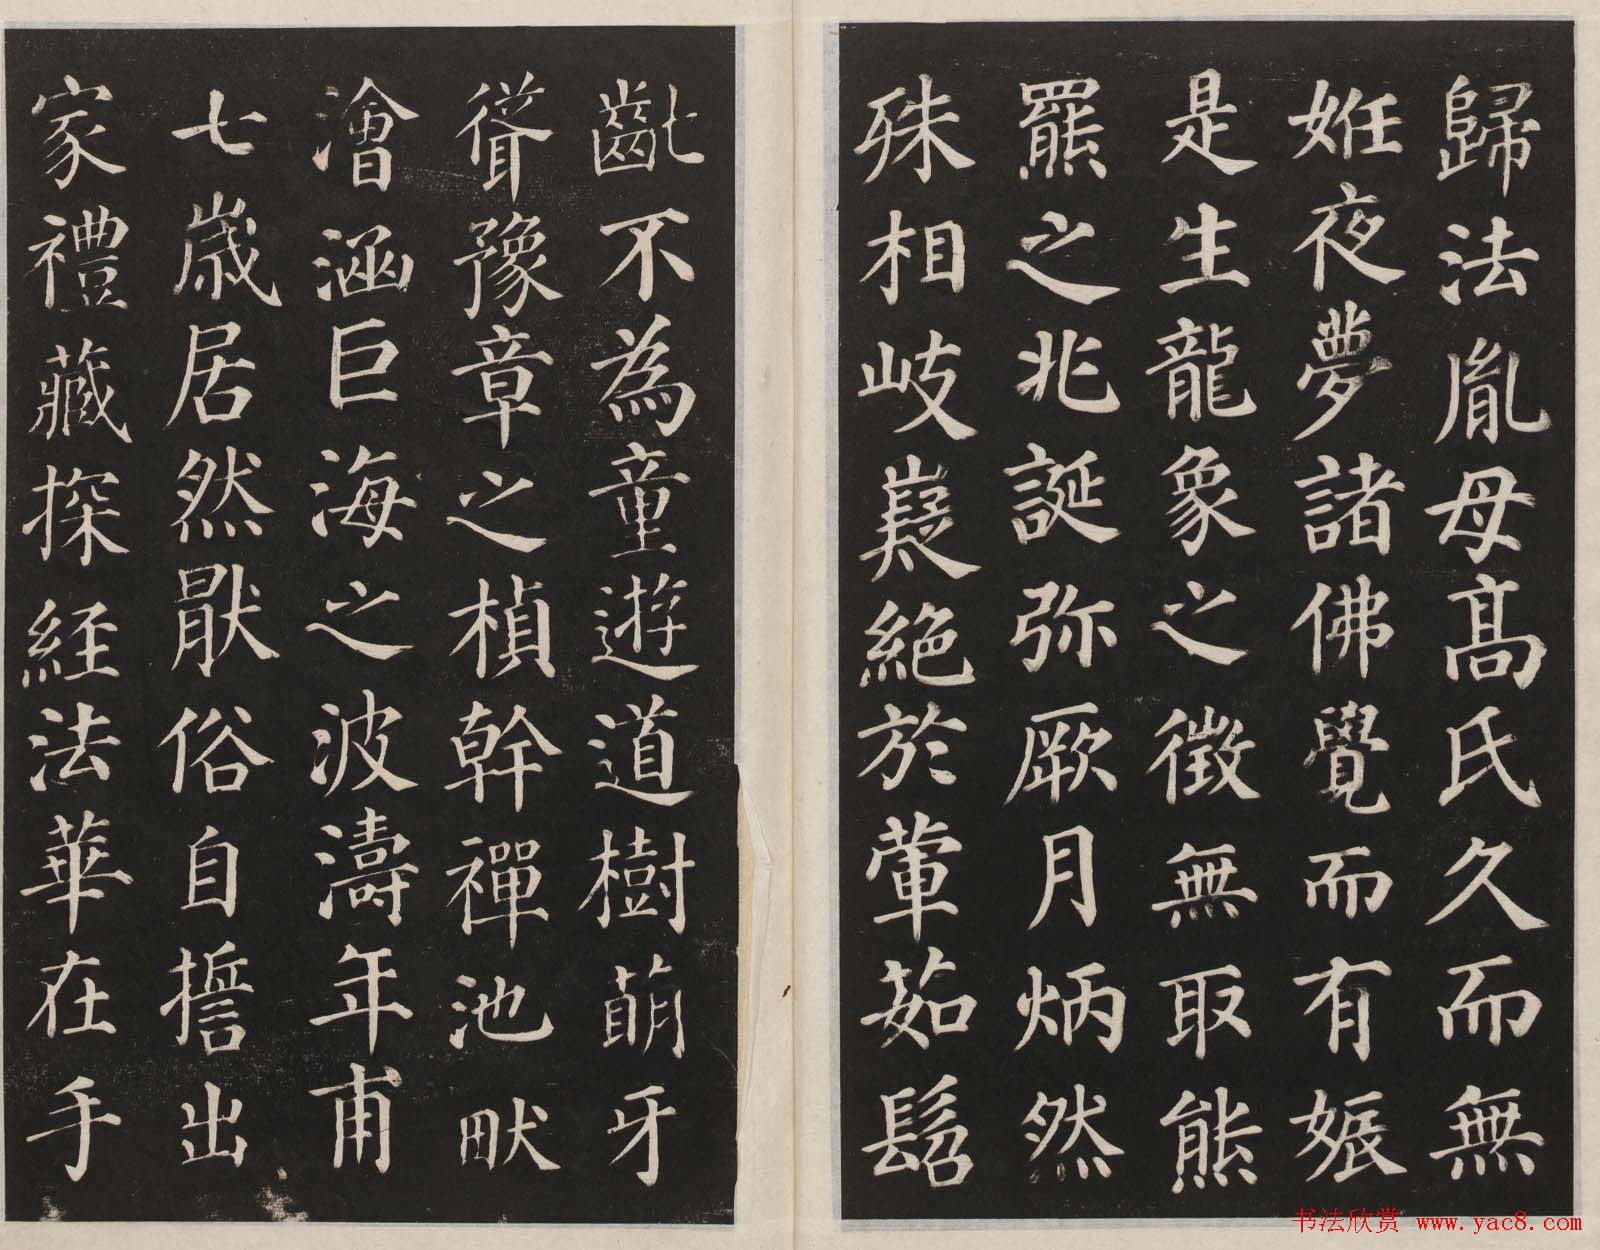 歸法胤母髙氏久而無
姙夜夢諸佛覺而有娠
是生龍象之徵無取熊
羆之兆誕弥厥月炳然
殊相岐嶷絕於葷茹髫
齔不為童遊道樹萌牙
聳豫章之楨幹禪池畎
澮涵巨海之波濤年甫
七歲居然猒俗自擔出
家禮藏探經法華在手
书法欣赏 www.yac8.com